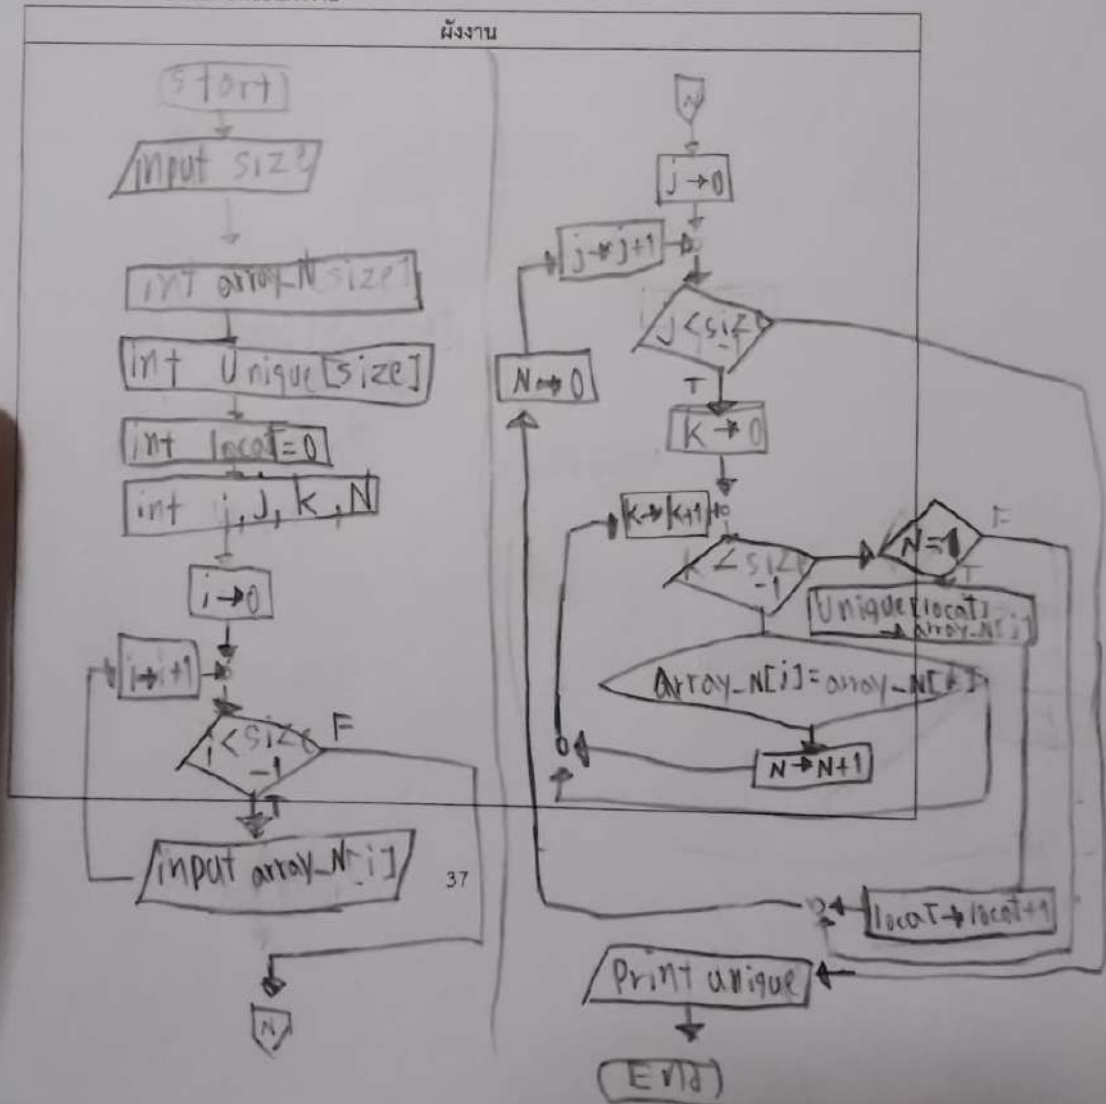 ผังงาน
start
input size
int array_N[size]
int Unique[size]
int locat=0
int i, j, k, N
i→0
i→i+1
i<size
-1
F
T
input array_N[i]
37
N
N
j→0
j→j+1
j<size
-1
T
N→0
k→0
k→k+1
k<size
-1
N=1
F
T
Unique[locat]
→array_N[j]
array_N[j]=array_N[k]
N→N+1
locat→locat+1
Print unique
End